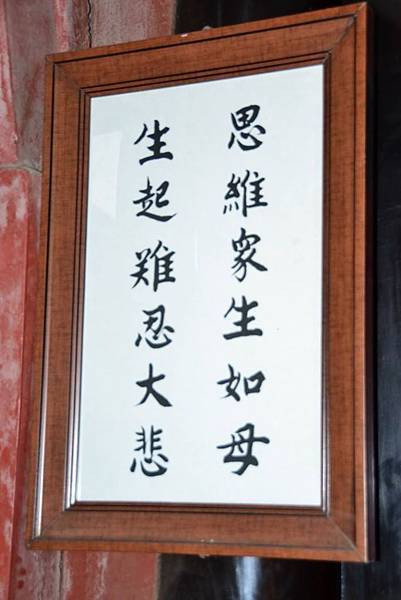 思維眾生如母
生起難忍大悲